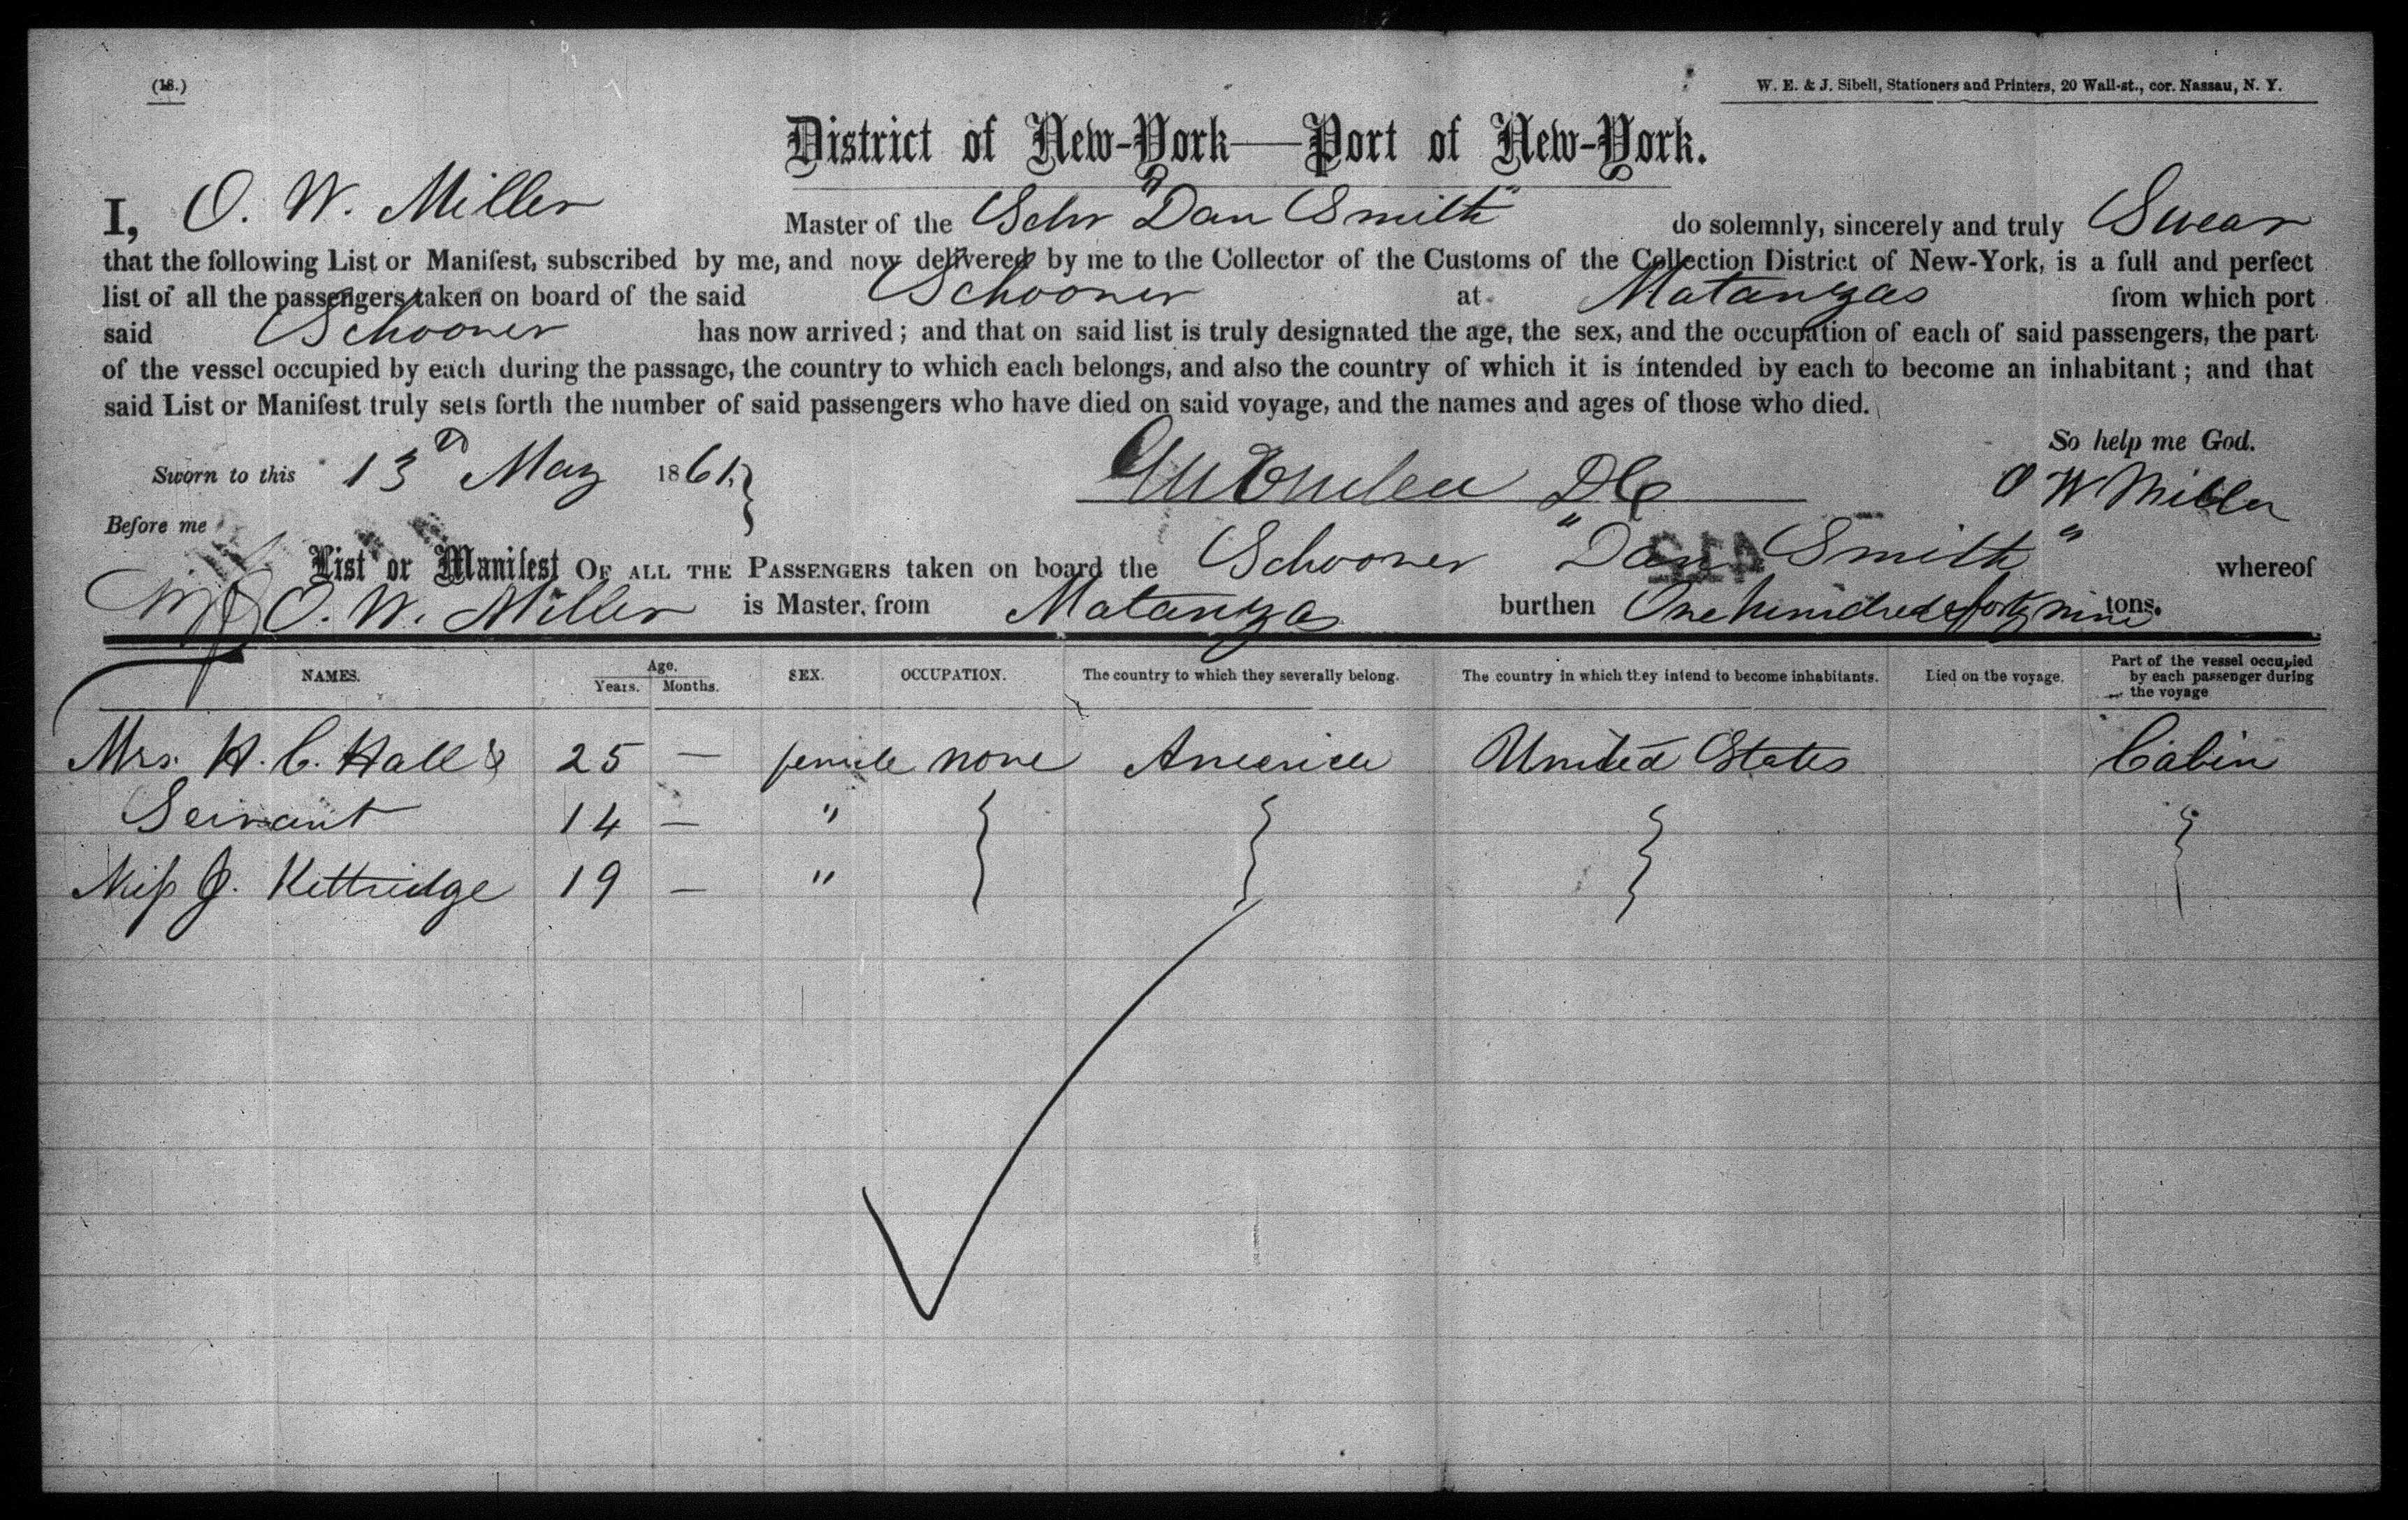 (18.)
W. E. & J. Sibell, Stationers and Printers, 20 Wall-st., cor. Nassau, N. Y.
District of New-York—Port of New-York.
I, O. W. Miller Master of the Schr "Dan Smith" do solemnly, sincerely and truly Swear
that the following List or Manifest, subscribed by me, and now delivered by me to the Collector of the Customs of the Collection District of New-York, is a full and perfect
list of all the passengers taken on board of the said Schooner at Matanzas from which port
said Schooner has now arrived; and that on said list is truly designated the age, the sex, and the occupation of each of said passengers, the part
of the vessel occupied by each during the passage, the country to which each belongs, and also the country of which it is intended by each to become an inhabitant; and that
said List or Manifest truly sets forth the number of said passengers who have died on said voyage, and the names and ages of those who died.
So help me God.
Sworn to this 13 May 1861, DC O W Miller
Before me
List or Manifest OF ALL THE PASSENGERS taken on board the Schooner "Dan Smith" whereof
O. W. Miller is Master, from Matanzas burthen One hundred & forty nine tons.
NAMES. Age. Years. Months. SEX. OCCUPATION. The country to which they severally belong. The country in which they intend to become inhabitants. Died on the voyage. Part of the vessel occupied by each passenger during the voyage
Mrs. H. C. Hall & 25 — female none America United States Cabin
Servant 14 — "
Miss J. Kettridge 19 — "